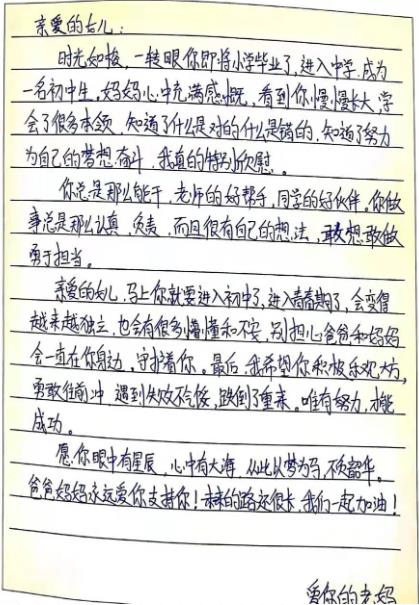 亲爱的女儿：
时光如梭，一转眼你即将小学毕业了，进入中学，成为
一名初中生，妈妈心中充满感慨，看到你慢慢长大，学
会了很多本领，知道了什么是对的什么是错的，知道了努力
为自己的梦想奋斗，我真的特别欣慰。
你总是那么能干，老师的好帮手，同学的好伙伴。你做
事总是那么认真，负责，而且很有自己的想法，敢想敢做
勇于担当。
亲爱的女儿，马上你就要进入初中了，进入青春期了，会变得
越来越独立，也会有很多懵懂和不安，别担心爸爸和妈妈
会一直在你身边，守护着你。最后，我希望你积极乐观大方，
勇敢往前冲，遇到失败不气馁，跌倒了重来。唯有努力，才能
成功。
愿你眼中有星辰，心中有大海，从此以梦为马，不负韶华。
爸爸妈妈永远爱你支持你！未来的路还很长，我们一起加油！
爱你的老妈